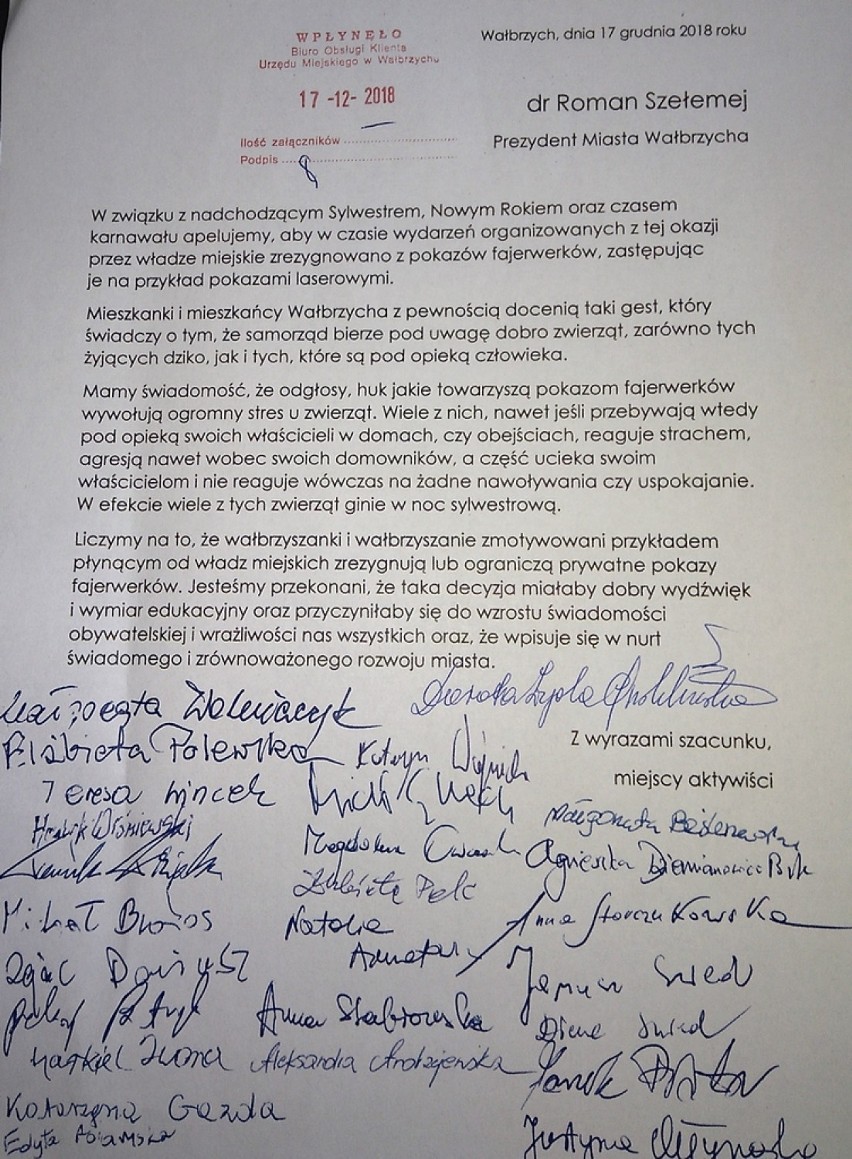 WPŁYNĘŁO
Biuro Obsługi Klienta
Urzędu Miejskiego w Wałbrzychu
17 -12- 2018
Ilość załączników
Podpis
Wałbrzych, dnia 17 grudnia 2018 roku
dr Roman Szełemej
Prezydent Miasta Wałbrzycha
W związku z nadchodzącym Sylwestrem, Nowym Rokiem oraz czasem
karnawału apelujemy, aby w czasie wydarzeń organizowanych z tej okazji
przez władze miejskie zrezygnowano z pokazów fajerwerków, zastępując
je na przykład pokazami laserowymi.
Mieszkanki i mieszkańcy Wałbrzycha z pewnością docenią taki gest, który
świadczy o tym, że samorząd bierze pod uwagę dobro zwierząt, zarówno tych
żyjących dziko, jak i tych, które są pod opieką człowieka.
Mamy świadomość, że odgłosy, huk jakie towarzyszą pokazom fajerwerków
wywołują ogromny stres u zwierząt. Wiele z nich, nawet jeśli przebywają wtedy
pod opieką swoich właścicieli w domach, czy obejściach, reaguje strachem,
agresją nawet wobec swoich domowników, a część ucieka swoim
właścicielom i nie reaguje wówczas na żadne nawoływania czy uspokajanie.
W efekcie wiele z tych zwierząt ginie w noc sylwestrową.
Liczymy na to, że wałbrzyszanki i wałbrzyszanie zmotywowani przykładem
płynącym od władz miejskich zrezygnują lub ograniczą prywatne pokazy
fajerwerków. Jesteśmy przekonani, że taka decyzja miałaby dobry wydźwięk
i wymiar edukacyjny oraz przyczyniłaby się do wzrostu świadomości
obywatelskiej i wrażliwości nas wszystkich oraz, że wpisuje się w nurt
świadomego i zrównoważonego rozwoju miasta.
Z wyrazami szacunku,
miejscy aktywiści
Małgorzata
Dorota
Elżbieta Polewska
Teresa Wincek
Henryk Wiśniewski
Magdalena
Małgorzata
Agnieszka
Elżbieta Pelc
Michał
Natalia
Anna Storczykowska
Anna Skabrowska
Iwona
Aleksandra Andrzejewska
Katarzyna Gazda
Edyta Adamska
Justyna